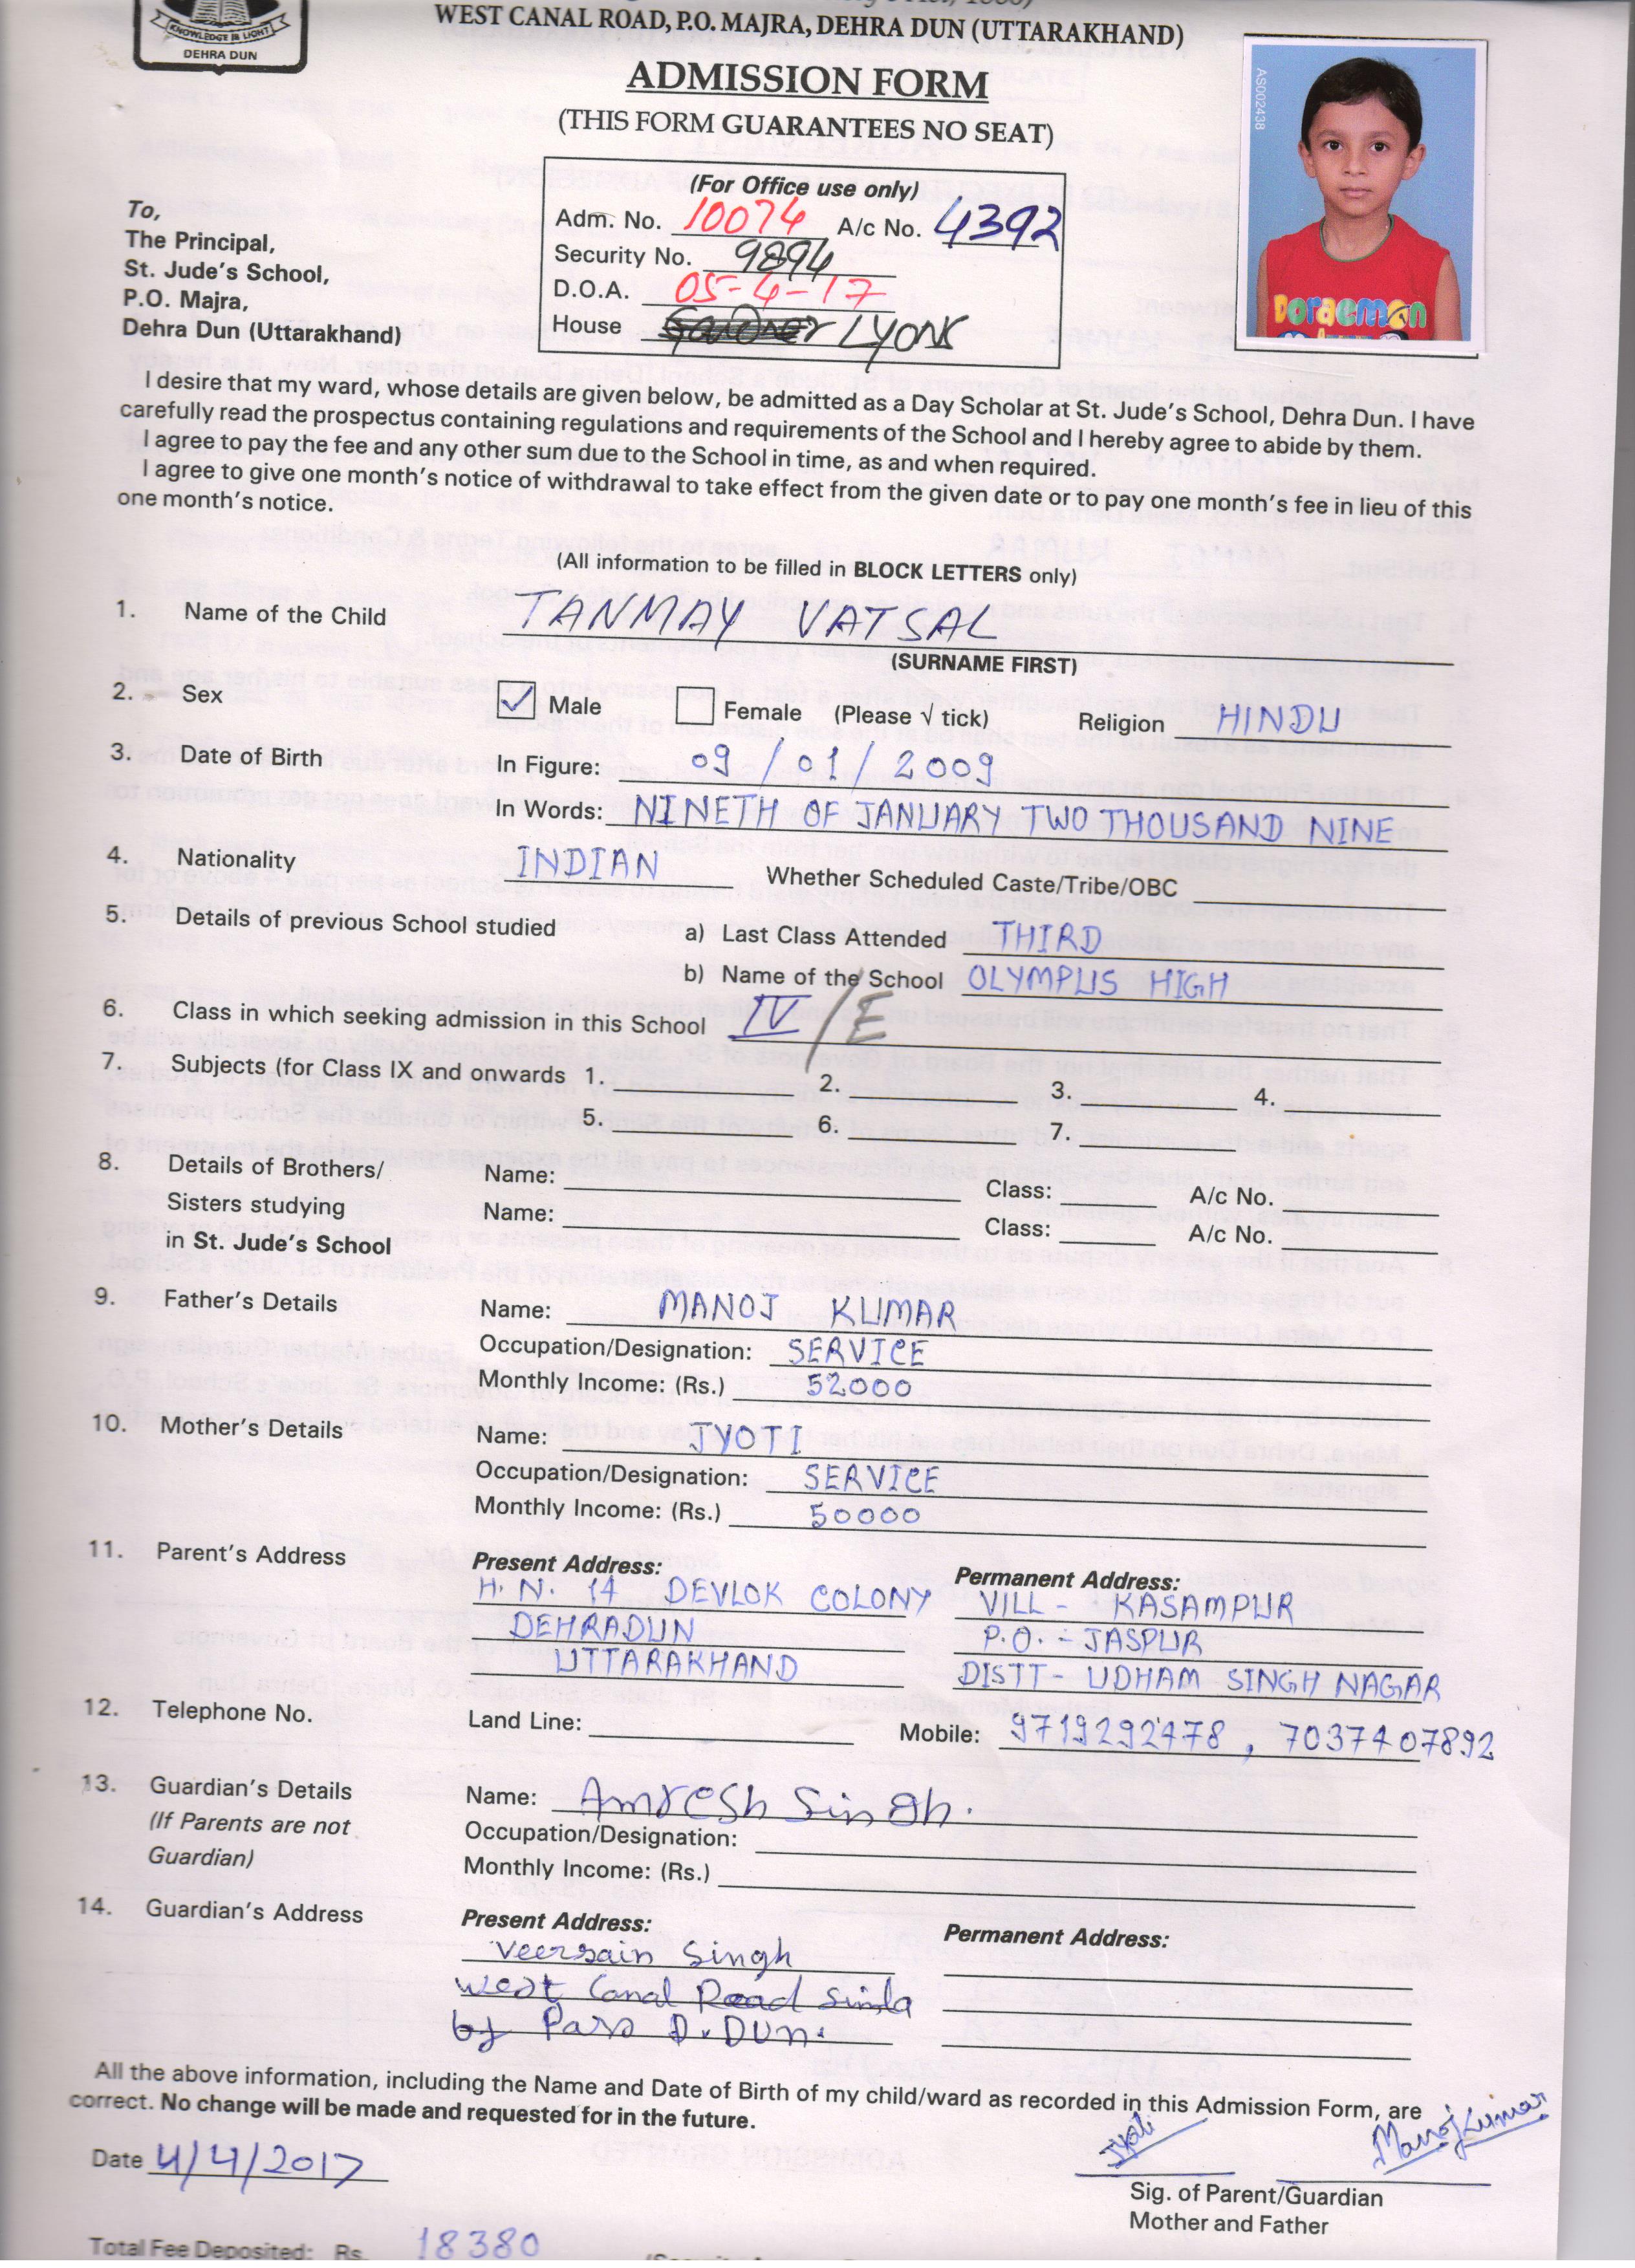 KNOWLEDGE IS LIGHT
DEHRA DUN
WEST CANAL ROAD, P.O. MAJRA, DEHRA DUN (UTTARAKHAND)
ADMISSION FORM
(THIS FORM GUARANTEES NO SEAT)
AS002438
Doraemon
(For Office use only)
Adm. No. 10074 A/c No. 4392
Security No. 9894
D.O.A. 05-4-17
House LYONS
To,
The Principal,
St. Jude's School,
P.O. Majra,
Dehra Dun (Uttarakhand)
I desire that my ward, whose details are given below, be admitted as a Day Scholar at St. Jude's School, Dehra Dun. I have
carefully read the prospectus containing regulations and requirements of the School and I hereby agree to abide by them.
I agree to pay the fee and any other sum due to the School in time, as and when required.
I agree to give one month's notice of withdrawal to take effect from the given date or to pay one month's fee in lieu of this
one month's notice.
(All information to be filled in BLOCK LETTERS only)
1. Name of the Child TANMAY VATSAL
(SURNAME FIRST)
2. Sex Male Female (Please √ tick) Religion HINDU
3. Date of Birth In Figure: 09/01/2009
In Words: NINETH OF JANUARY TWO THOUSAND NINE
4. Nationality INDIAN Whether Scheduled Caste/Tribe/OBC
5. Details of previous School studied a) Last Class Attended THIRD
b) Name of the School OLYMPUS HIGH
6. Class in which seeking admission in this School IV/E
7. Subjects (for Class IX and onwards 1. 2. 3. 4.
5. 6. 7.
8. Details of Brothers/ Name: Class: A/c No.
Sisters studying Name: Class: A/c No.
in St. Jude's School
9. Father's Details Name: MANOJ KUMAR
Occupation/Designation: SERVICE
Monthly Income: (Rs.) 52000
10. Mother's Details Name: JYOTI
Occupation/Designation: SERVICE
Monthly Income: (Rs.) 50000
11. Parent's Address Present Address: Permanent Address:
H. N. 14 DEVLOK COLONY VILL - KASAMPUR
DEHRADUN P.O. - JASPUR
UTTARAKHAND DISTT - UDHAM SINGH NAGAR
12. Telephone No. Land Line: Mobile: 9719292478, 7037407892
13. Guardian's Details Name: Amresh Singh.
(If Parents are not Occupation/Designation:
Guardian) Monthly Income: (Rs.)
14. Guardian's Address Present Address: Permanent Address:
Veersain Singh
West Canal Road Simla
by Pass D.DUN.
All the above information, including the Name and Date of Birth of my child/ward as recorded in this Admission Form, are
correct. No change will be made and requested for in the future.
Jyoti Manoj Kumar
Date 4/4/2017
Sig. of Parent/Guardian
Mother and Father
Total Fee Deposited: Rs. 18380